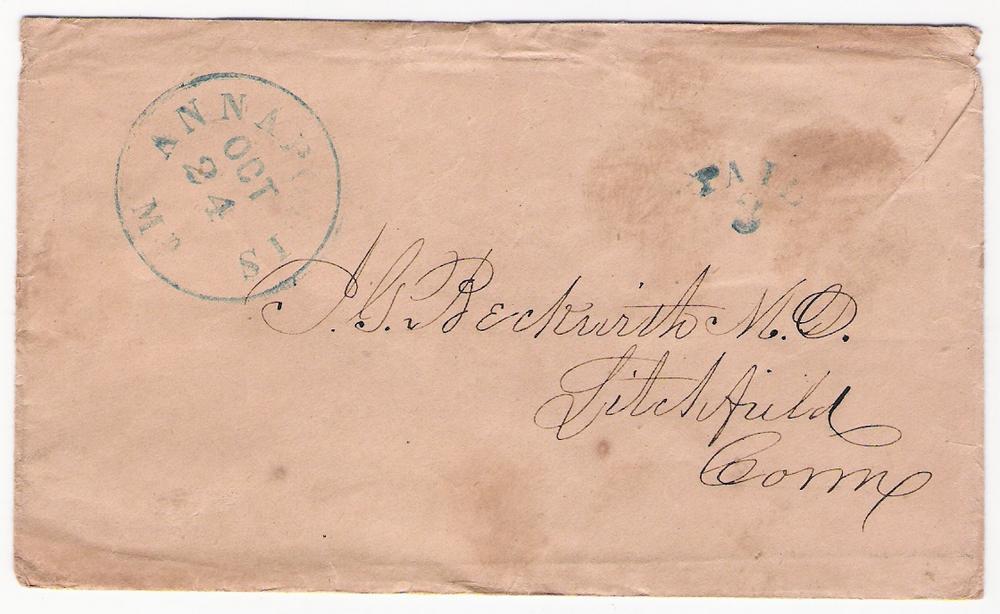 ANNAPOLIS
OCT
24
Md
PAID
3
J. G. Beckwith M.D.
Litchfield
Conn